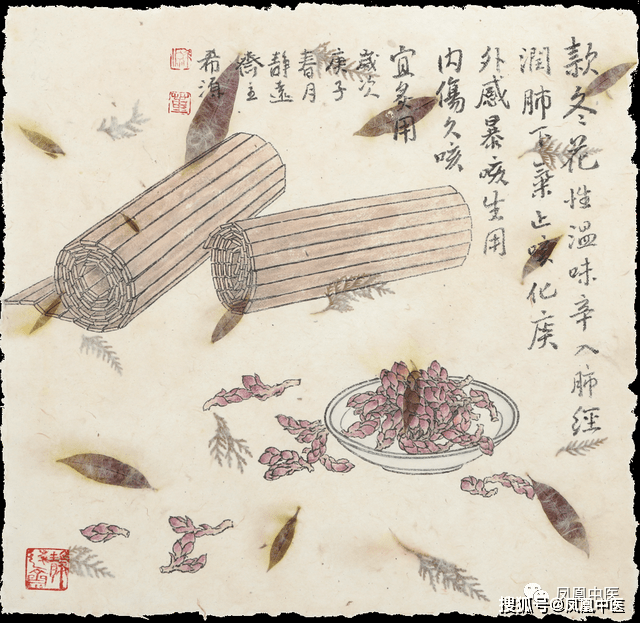 款冬花性温味辛入肺經
潤肺下氣止咳化痰
外感暴咳生用
内傷久咳
宜炙用
歲次
庚子
春月
静遠
齋主
希
凤凰中医
搜狐号@凤凰中医